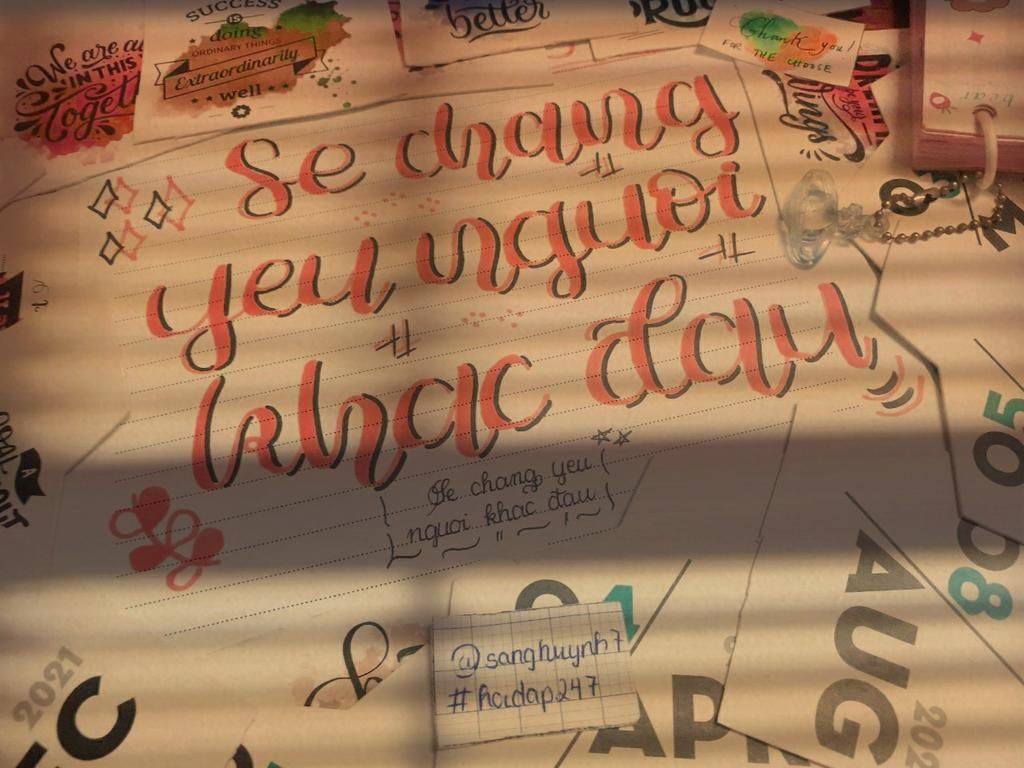 We are all
IN THIS
Toget
SUCCESS
IS
doing
ORDINARY THINGS
Extraordinarily
well
better
Thank you!
FOR THE CHOOSE
Se chang
yeu nguoi
khac đau
Se chang yeu
nguoi khac đau
@sanghuynh7
#hoidap247
2021
APR
AUG
202
08
05